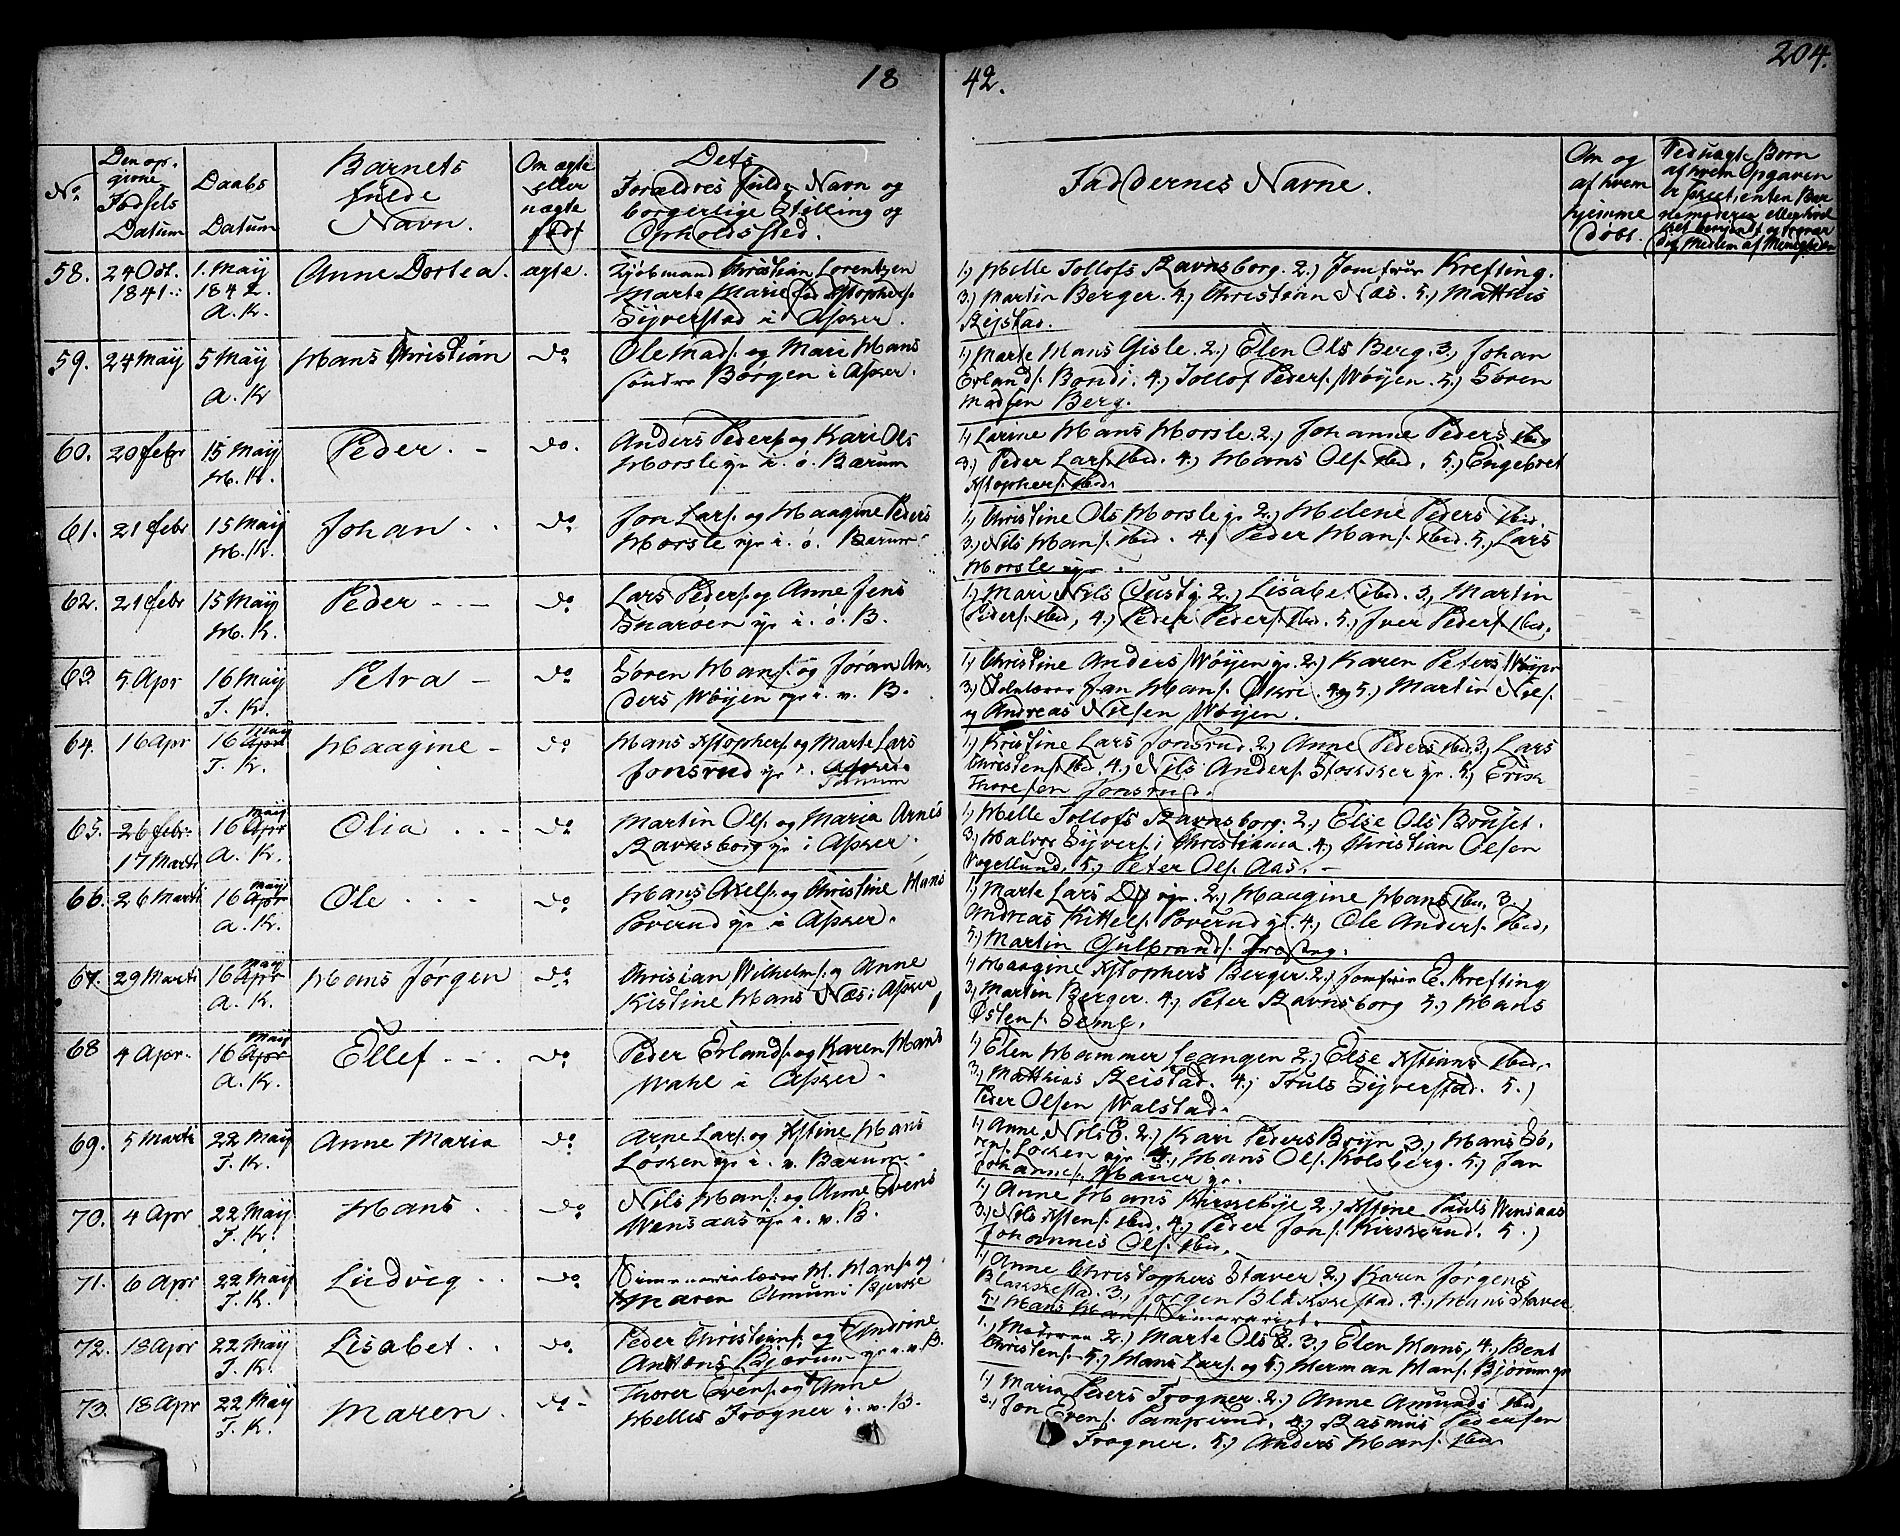 18 42. 204.
No.
Den op-
givne
Fødsels
Datum
Daabs
Datum
Barnets
fulde
Navn.
Om ægte
eller
uægte
født
Dets
Forældres fulde Navn og
borgerlige Stilling og
Opholdssted.
Faddernes Navne.
Om og
af hvem
hjemme
døbt.
Ved uægte Børn
af hvem Opgaven
58. 24 Oct. 1841. 1. May 1842. A. K. Anne Dortea. ægte.
Kjøbmand Christian Lorentzen
Marte Marie fød Xstophers.
Syverstad i Asker.
1.) Helle Tollofs Ravnsborg. 2.) Jomfrue Krefting.
3.) Martin Berger. 4.) Christian Næs. 5.) Mathias
Rejstad.
59. 24 May 5 May A. K Hans Christian do
Ole Mads. og Mari Hans
søndre Borgen i Asker.
1.) Marte Hans Gisle. 2.) Elen Ols Berg. 3.) Johan
Erlands. Bondi. 4.) Tollof Peders. Wøyen. 5.) Søren
Madsen Berg.
60. 20 febr 15 May H. K. Peder. do.
Anders Peders. og Kari Ols
Horsle gr i. ø. Bærum
1.) Larine Hans Horsle. 2.) Johanne Peders ibid
3.) Peder Lars. ibid. 4.) Hans Ols. ibid. 5.) Engebret
Xstophers. ibid.
61. 21 febr 15 May H. K. Johan do
Jon Lars. og Haagine Peders
Horsle gr i. ø. Bærum
1.) Christine Ols Horsle gr 2.) Helene Peders ibid.
3.) Nils Hans. ibid. 4.) Peder Hans. ibid. 5.) Lars
Horsle gr.
62. 21 febr 15 May H. K. Peder do
Lars Peders. og Anne Jens
Snarøen gr i. ø. B.
1.) Mari Nils 2.) Lisabet ibid. 3.) Martin
Peders. ibid, 4.) Peder Peders. ibid. 5.) Iver Peders. ibid.
63 5 Apr 16 May T. K. Petra do
Søren Hans. og Jøran An-
ders Wøyen gr i. v. B.
1.) Christine Anders Wøyen gr. 2.) Karen Peters Wøyen
3.) Skolelærer Jan Hans. 4 og 5.) Martin Nils.
og Andreas Nilsen Wøyen.
64. 16 Apr 16 Apr May T. K. Haagine do
Hans Xstophers. og Marte Lars
Jonsrud gr i. Asker
Tanum
1.) Kristine Lars Jonsrud. 2.) Anne Peders ibid. 3.) Lars
Christens. ibid. 4.) Nils Anders. Stokker gr. 5.) Erik
Thoresen Jonsrud.
65. 26 febr. 17 Marti 16 Apr May A. K. Olia do
Martin Ols. og Maria Arnes
Ravnsborg gr i Asker.
1.) Helle Tollofs Ravnsborg. 2.) Else Ols Brøset.
3.) Halvor Syvers. i Christiania. 4.) Christian Olsen
Vogellund. 5.) Peter Ols. Aas.
66. 26 Marti 16 Apr May A. K. Ole do
Hans Axels. og Christine Hans
Poverud gr i Asker.
1.) Marte Lars gr. 2.) Haagine Hans ibid. 3.)
Andreas Kittels. Poverud gr. 4.) Ole Anders. ibid,
5.) Martin Gulbrands.
67. 29 Marti 16 Apr May A. K. Hans Jørgen do
Christian Wilhelms. og Anne
Kistine Hans Næs i Asker
1.) Haagine Xstophers Berger. 2.) Jomfrue E. Krefting
3.) Martin Berger. 4.) Peter Ravnsborg 5.) Hans
Østens. Sem.
68 4 Apr. 16 Apr May A. K. Ellef do
Peder Erlands. og Karen Hans
Wahl i Asker.
1.) Elen Hammer Leangen 2.) Else Xstians ibid.
3.) Matthias Reistad. 4.) Truls Syverstad. 5.)
Peder Olsen Walstad.
69. 5 Marti 22 May T. K. Anne Maria do
Arne Lars. og Xstine Hans
Løken gr i. v. Bærum.
1.) Anne Nils 2.) Kari Peders Bryn 3.) Hans Sø-
rens. Løken gr. 4.) Hans Ols. Kolsberg. 5.) Jan
Johannes. Hauer gr.
70. 4 Apr 22 May T. K. Hans do
Nils Hans. og Anne Evens
Wensaas gr i. v. B.
1.) Anne Hans Kirkebye 2.) Xstine Pauls Wensaas
3.) Nils Xstens. ibid. 4.) Peder Jons. Kirkerud. 5.)
Johannes Ols. ibid.
71. 6 Apr 22 May T. K. Ludvig do
Siminarielærer H. Hans. og
Maren Amun i Bjerke
1.) Anne Christophers Staver 2.) Karen Jørgens
Blakkestad. 3.) Jørgen Blakkestad. 4.) Hans Staver
5.) Hans Hans. Simanariet.
72. 18 Apr 22 May T. K. Lisabet do
Peder Christians. og Andrine
Antons Bjerum gr i. v. B.
1.) Moderen 2.) Marte Ols 3.) Elen Hans, 4.) Bent
Christens. 5.) Hans Lars. og 5.) Herman Hans. Bjørum gr
73. 18 Apr 22 May T. K. Maren. do
Thorer Evens. og Anne
Helles Frogner i. v. B.
1.) Maria Peders Frogner. 2.) Anne Amunds ibid
3.) Jon Evens. 4.) Rasmus Pedersen
Frogner. 5.) Anders Hans. ibid.